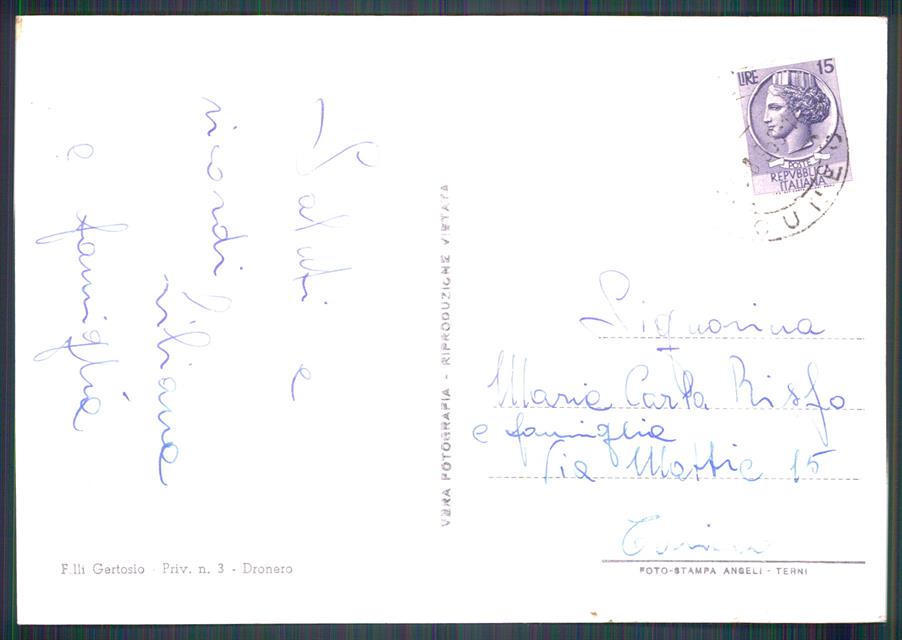 Saluti e
ricordi
Liliana
e famiglia
F.lli Gertosio - Priv. n. 3 - Dronero
VERA FOTOGRAFIA - RIPRODUZIONE VIETATA
LIRE 15
POSTE
REPVBBLICA
ITALIANA
Signorina
Maria Carla
e famiglia
Via 15
Torino
FOTO-STAMPA ANGELI - TERNI